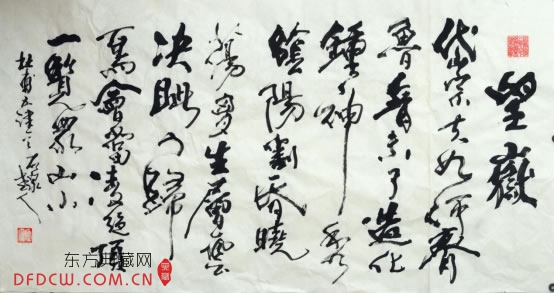 望嶽
岱宗夫如何齊
魯青未了造化
鍾神秀
陰陽割昏曉
蕩胸生層雲
決眥入歸
鳥會當凌絕頂
一覽眾山小
杜甫五律
东方典藏网
DFDCW.COM.CN